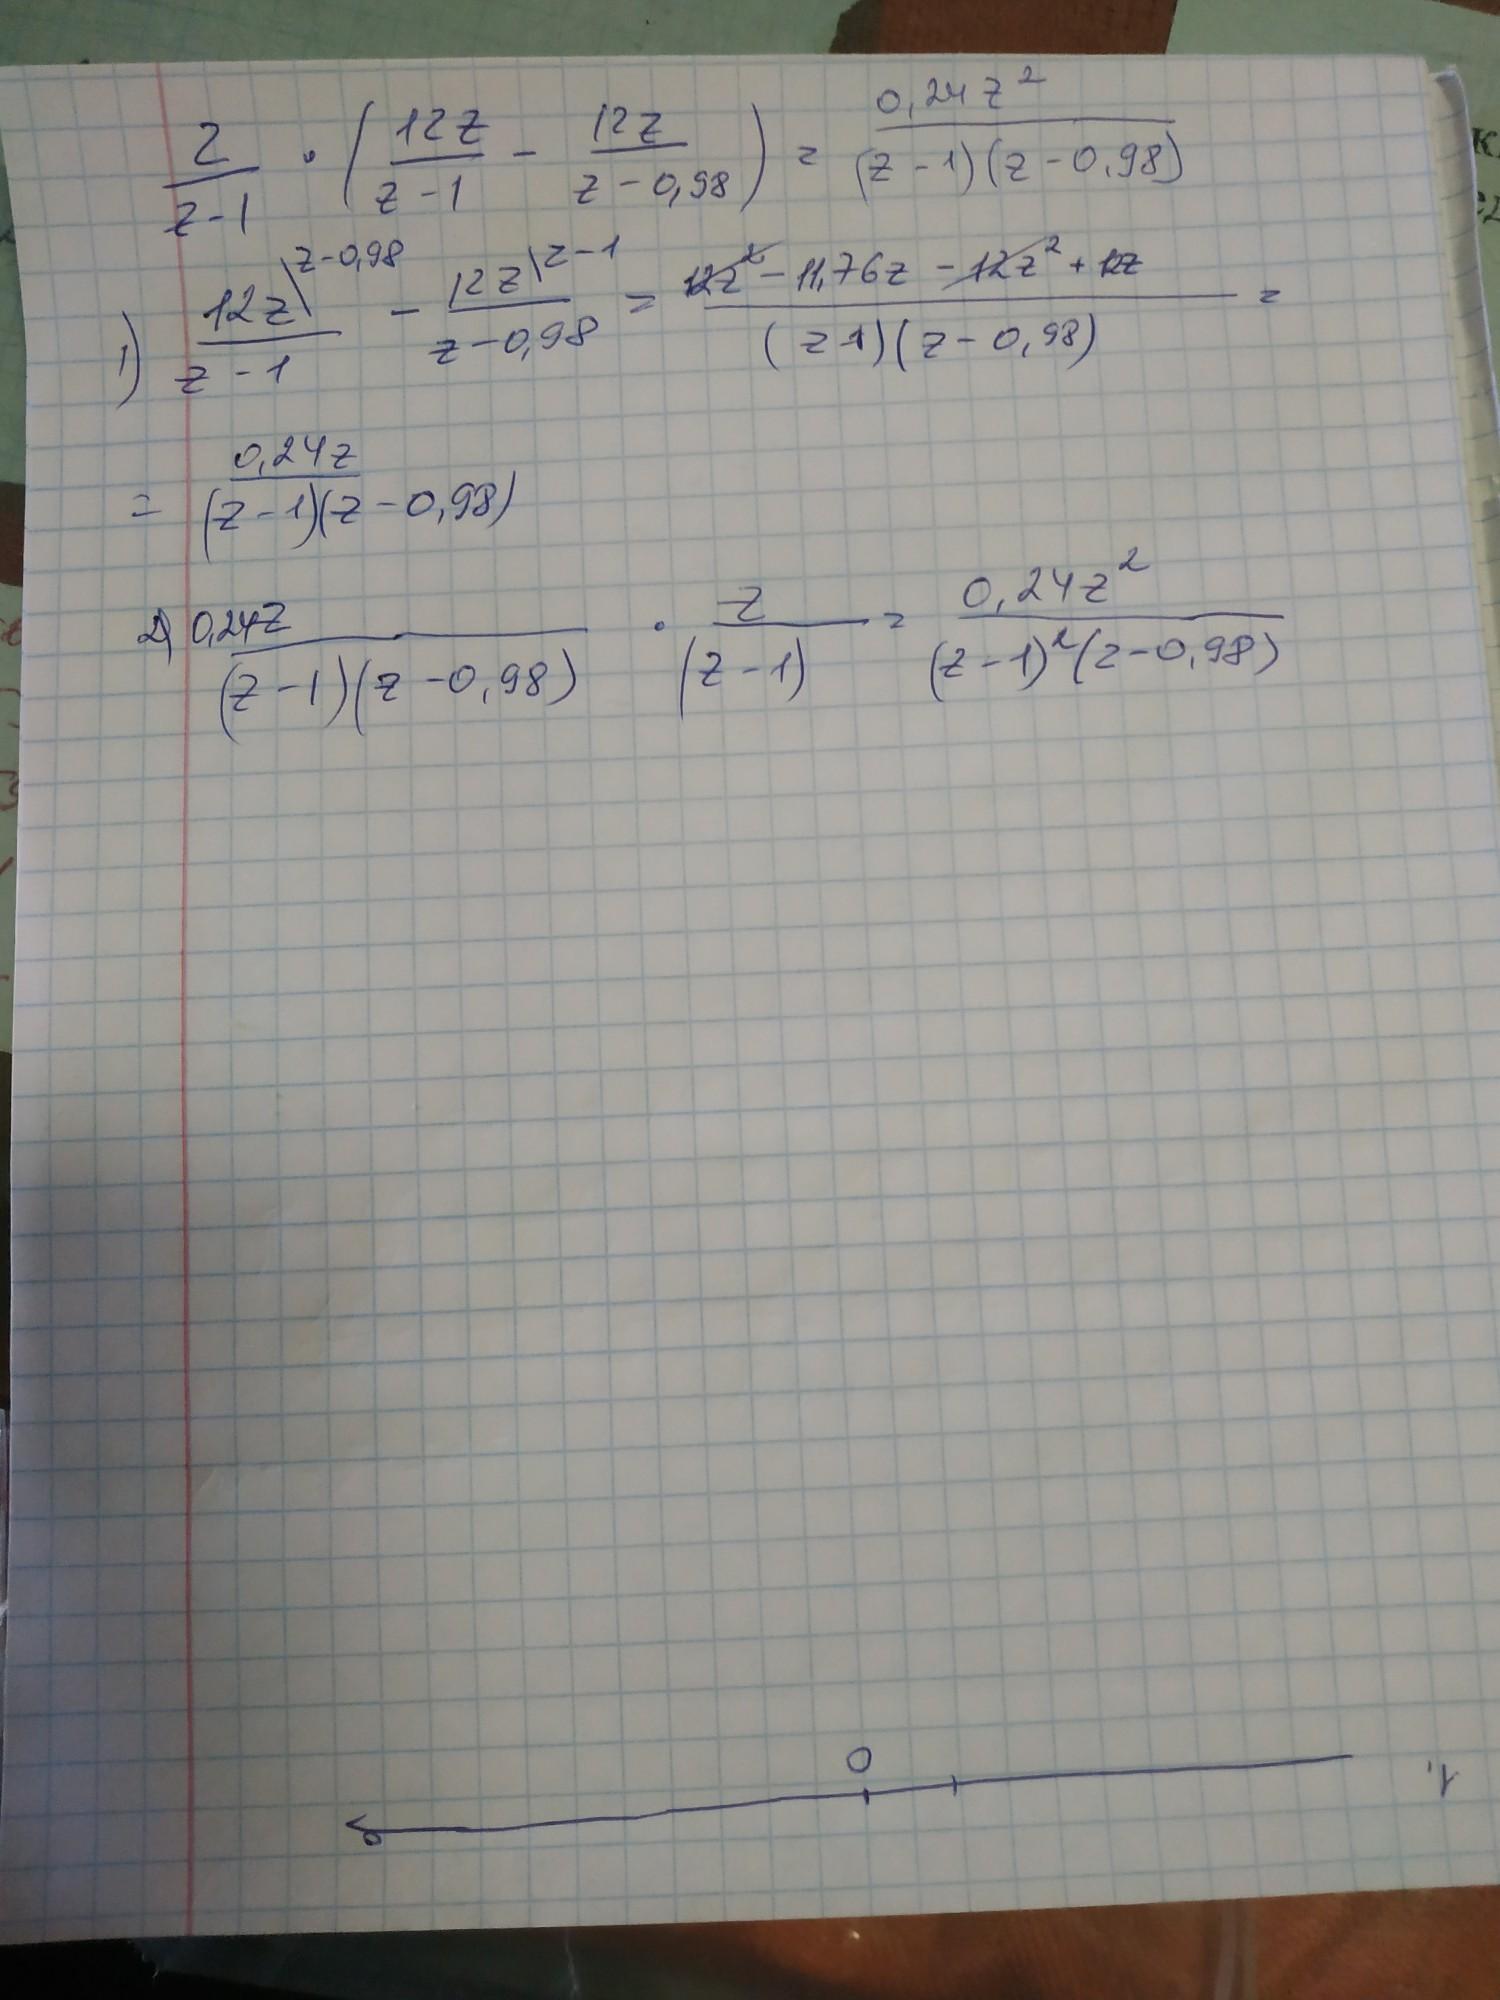 z/(z-1) · (12z/(z-1) - 12z/(z-0,98)) = 0,24z²/((z-1)(z-0,98))
1) 12z\z-0,98/(z-1) - 12z\z-1/(z-0,98) = (12z² - 11,76z - 12z² + 12z)/((z-1)(z-0,98)) =
= 0,24z/((z-1)(z-0,98))
2) 0,24z/((z-1)(z-0,98)) · z/(z-1) = 0,24z²/((z-1)²(z-0,98))
0
1.